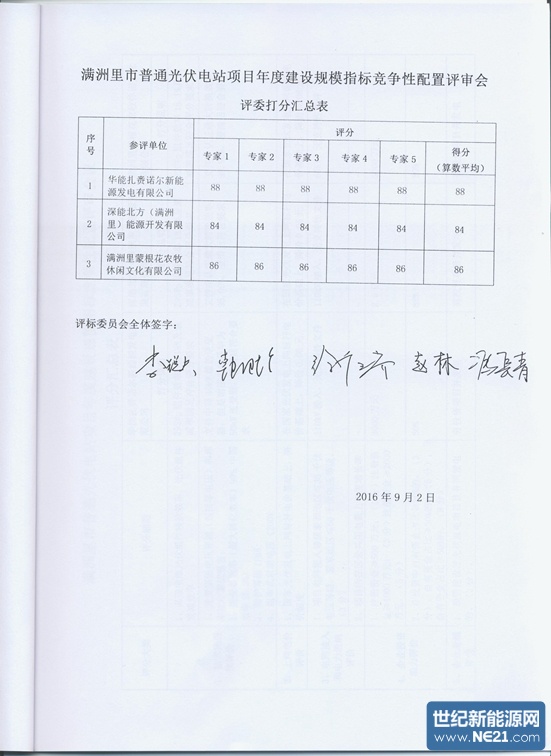 满洲里市普通光伏电站项目年度建设规模指标竞争性配置评审会
评委打分汇总表
序号 参评单位 评分
专家1 专家2 专家3 专家4 专家5 得分（算数平均）
1 华能扎赉诺尔新能源发电有限公司 88 88 88 88 88 88
2 深能北方（满洲里）能源开发有限公司 84 84 84 84 84 84
3 满洲里蒙根花农牧休闲文化有限公司 86 86 86 86 86 86
评标委员会全体签字：
赵林
2016年9月2日
世纪新能源网
www.NE21.com